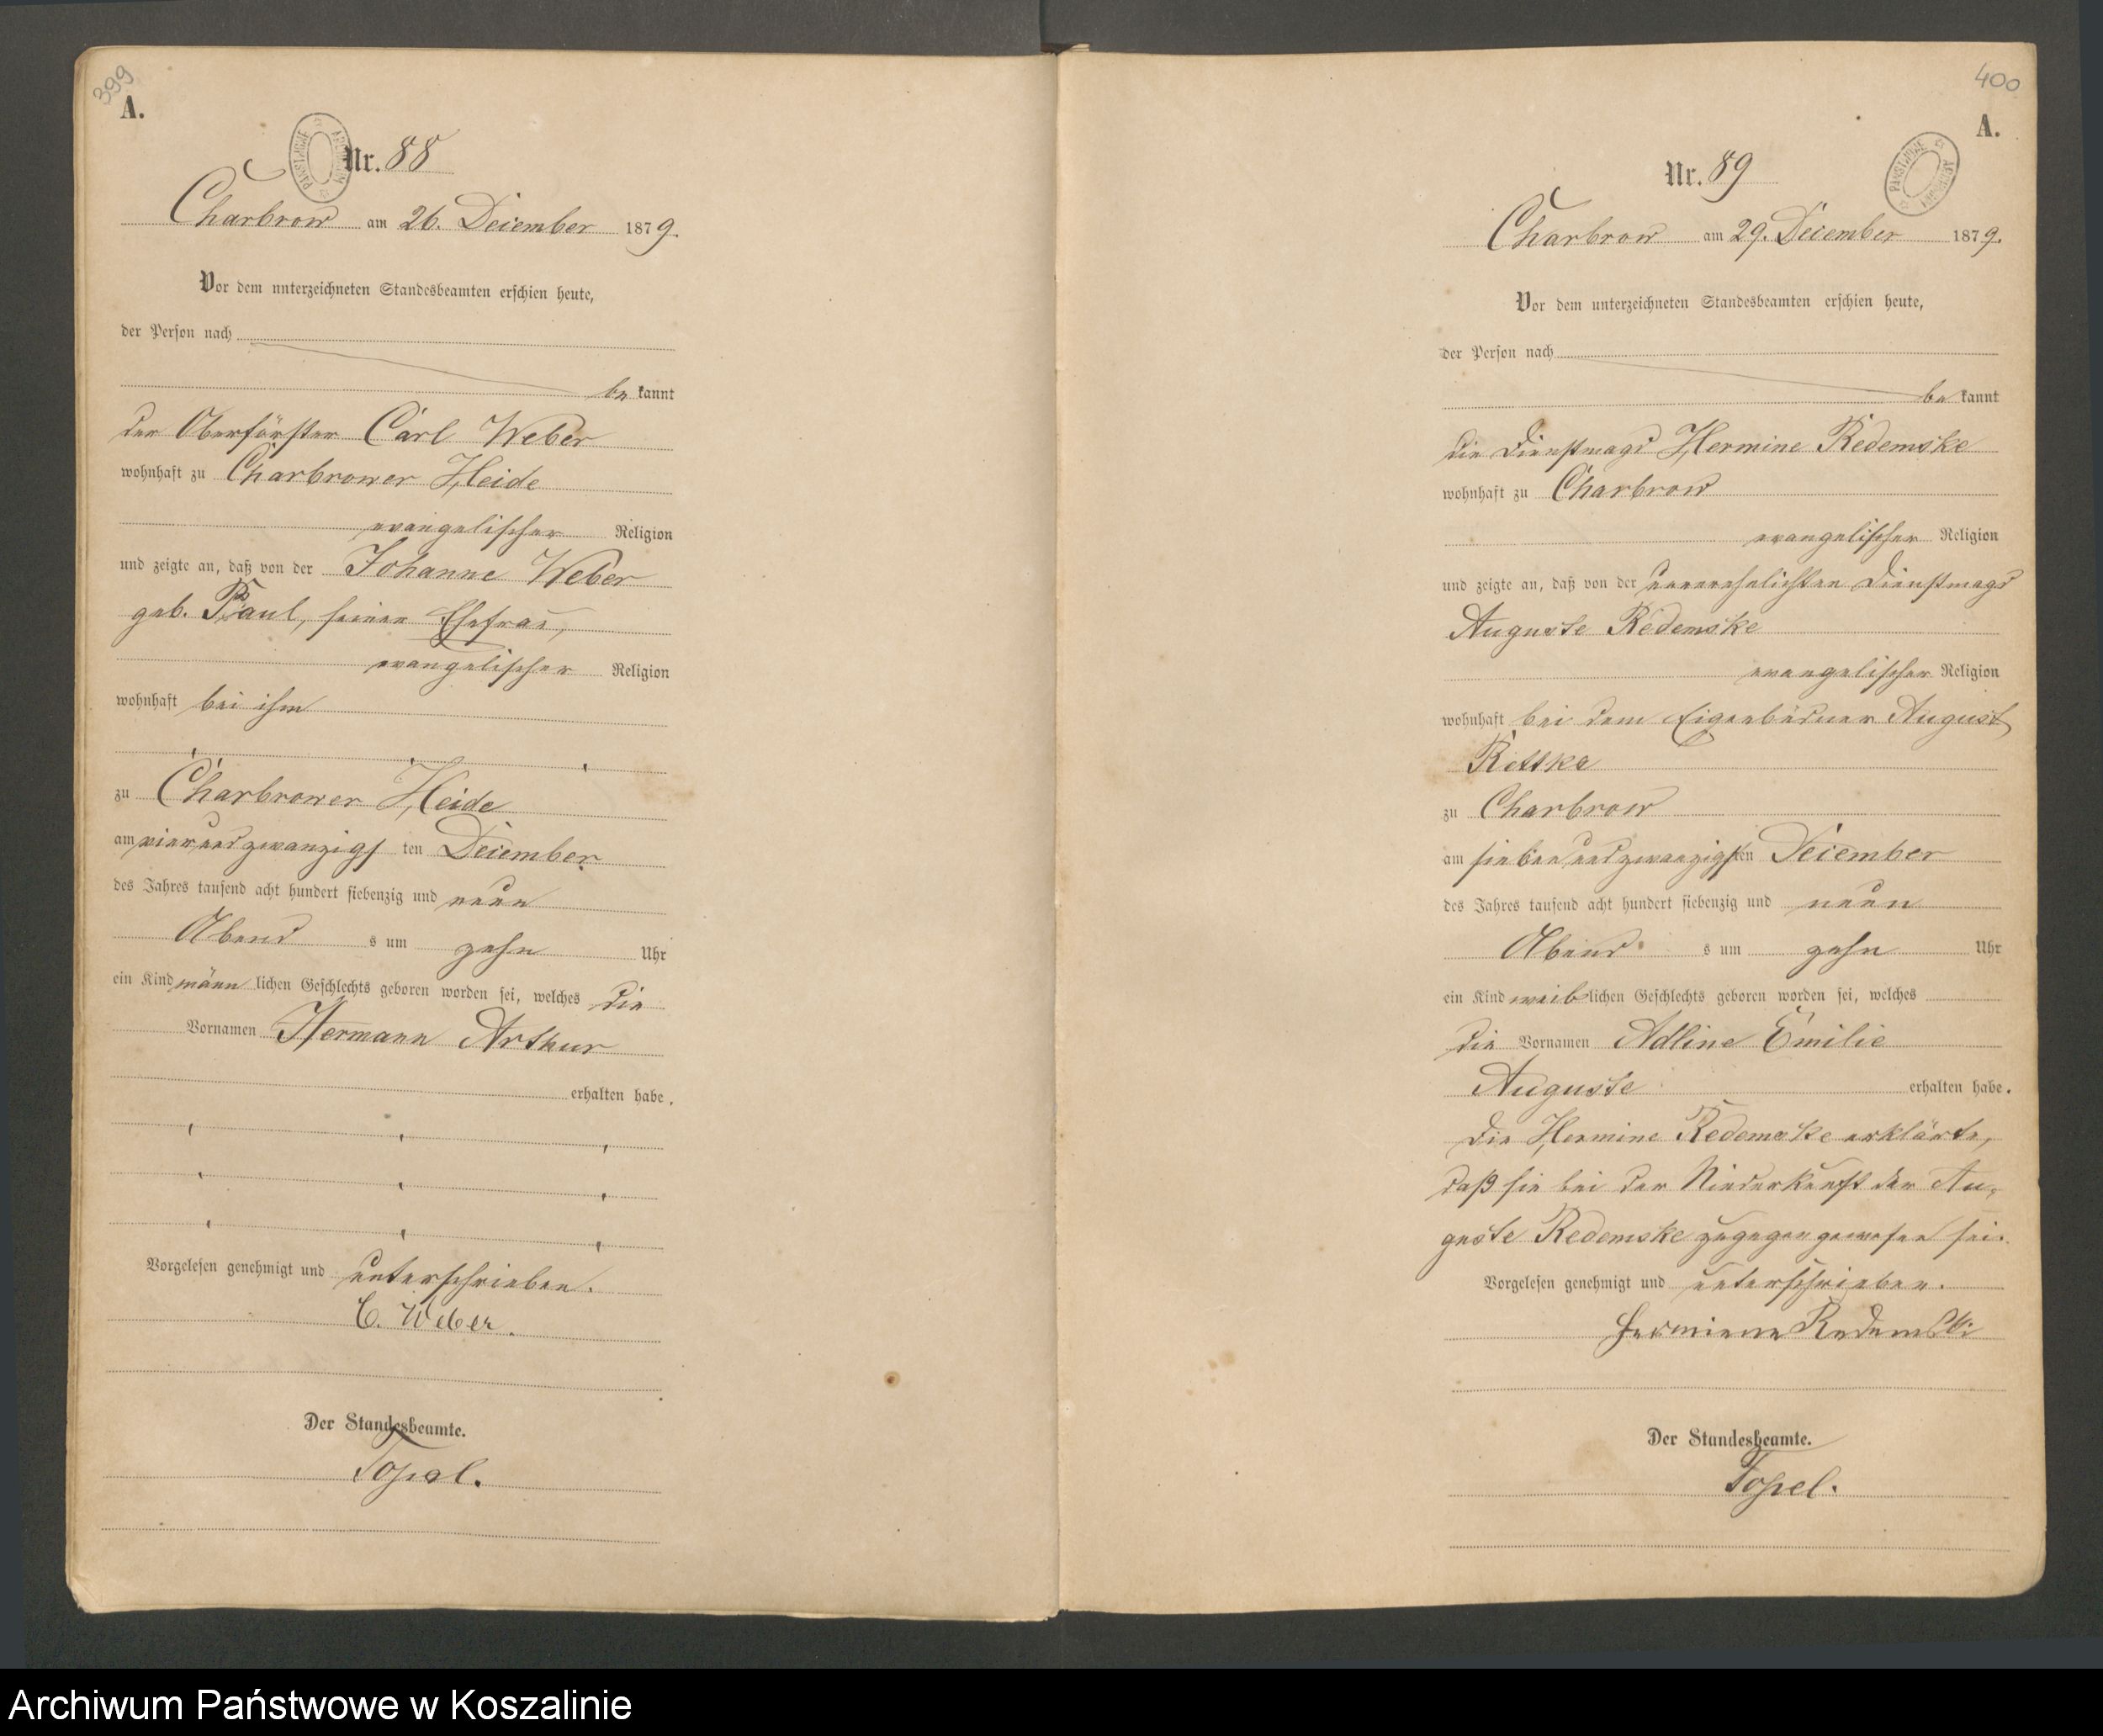 399
A.
PAŃSTWOWE ARCHIWUM
Nr. 88
Charbrow am 26. Dezember 1879.
Vor dem unterzeichneten Standesbeamten erschien heute,
der Person nach
be kannt
der Oberförster Carl Weber
wohnhaft zu Charbrower Heide
evangelischer Religion
und zeigte an, daß von der Johanne Weber
geb. Paul, seiner Ehefrau,
evangelischer Religion
wohnhaft bei ihm
zu Charbrower Heide
am vierundzwanzigs ten Dezember
des Jahres tausend acht hundert siebenzig und neun
Abend s um zehn Uhr
ein Kind männ lichen Geschlechts geboren worden sei, welches die
Vornamen Hermann Arthur
erhalten habe.
Vorgelesen genehmigt und unterschrieben.
C. Weber.
Der Standesbeamte.
Topel.
400
A.
PAŃSTWOWE ARCHIWUM
Nr. 89
Charbrow am 29. Dezember 1879.
Vor dem unterzeichneten Standesbeamten erschien heute,
der Person nach
be kannt
die Dienstmagd Hermine Redemske
wohnhaft zu Charbrow
evangelischer Religion
und zeigte an, daß von der unverehelichten Dienstmagd
Auguste Redemske
evangelischer Religion
wohnhaft bei dem Eigenbüdner August
Rettke
zu Charbrow
am siebenundzwanzigsten Dezember
des Jahres tausend acht hundert siebenzig und neun
Abend s um zehn Uhr
ein Kind weib lichen Geschlechts geboren worden sei, welches
die Vornamen Adline Emilie
Auguste erhalten habe.
Die Hermine Redemske erklärte,
daß sie bei der Niederkunft der Au-
guste Redemske zugegen gewesen sei.
Vorgelesen genehmigt und unterschrieben.
Hermiene Redemski
Der Standesbeamte.
Topel.
Archiwum Państwowe w Koszalinie